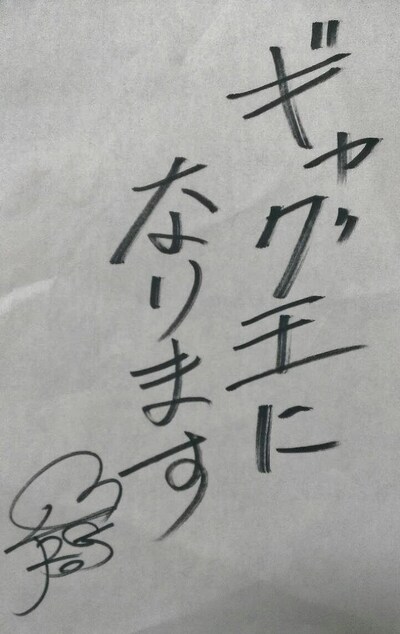 ギャグ王に
なります